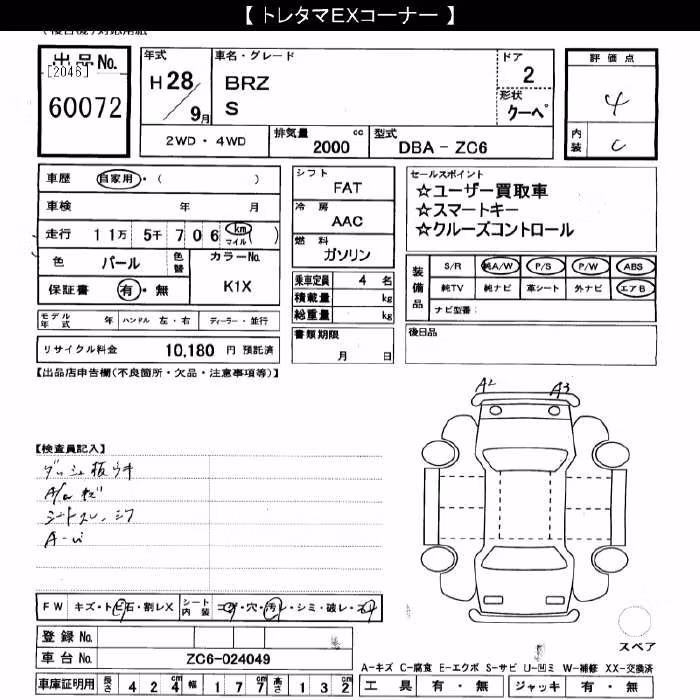 【 トレタマEXコーナー 】
出品No.
[2046]
60072
年式
H 28
9月
車名・グレード
BRZ
S
ドア
2
形状
クーペ
評価点
4
内装
C
2WD・4WD
排気量 cc
2000
型式
DBA - ZC6
車歴 自家用・( )
車検 年 月
走行 11万 5千 706 km マイル ( )
色 パール 色替
カラーNo.
K1X
保証書 有・無
モデル年式 年 ハンドル 左・右 ディーラー・並行
リサイクル料金 10,180 円 預託済
シフト
FAT
冷房
AAC
燃料
ガソリン
乗車定員 4 名
積載量 kg
総重量 kg
書類期限
月 日
セールスポイント
☆ユーザー買取車
☆スマートキー
☆クルーズコントロール
装備品
S/R 純A/W P/S P/W ABS
純TV 純ナビ 革シート 外ナビ エアB
ナビ型番:
後日品
【出品店申告欄(不良箇所・欠品・注意事項等)】
A2 A3
【検査員記入】
FW キズ・トビ石・割レX シート内装 コゲ・穴・汚レ・シミ・破レ・スレ
登録No.
車台No. ZC6-024049
車庫証明用 長さ 424cm 幅 177cm 高さ 132cm
スペア
A-キズ C-腐食 E-エクボ S-サビ U-凹ミ W-補修 XX-交換済
工具 有・無 ジャッキ 有・無